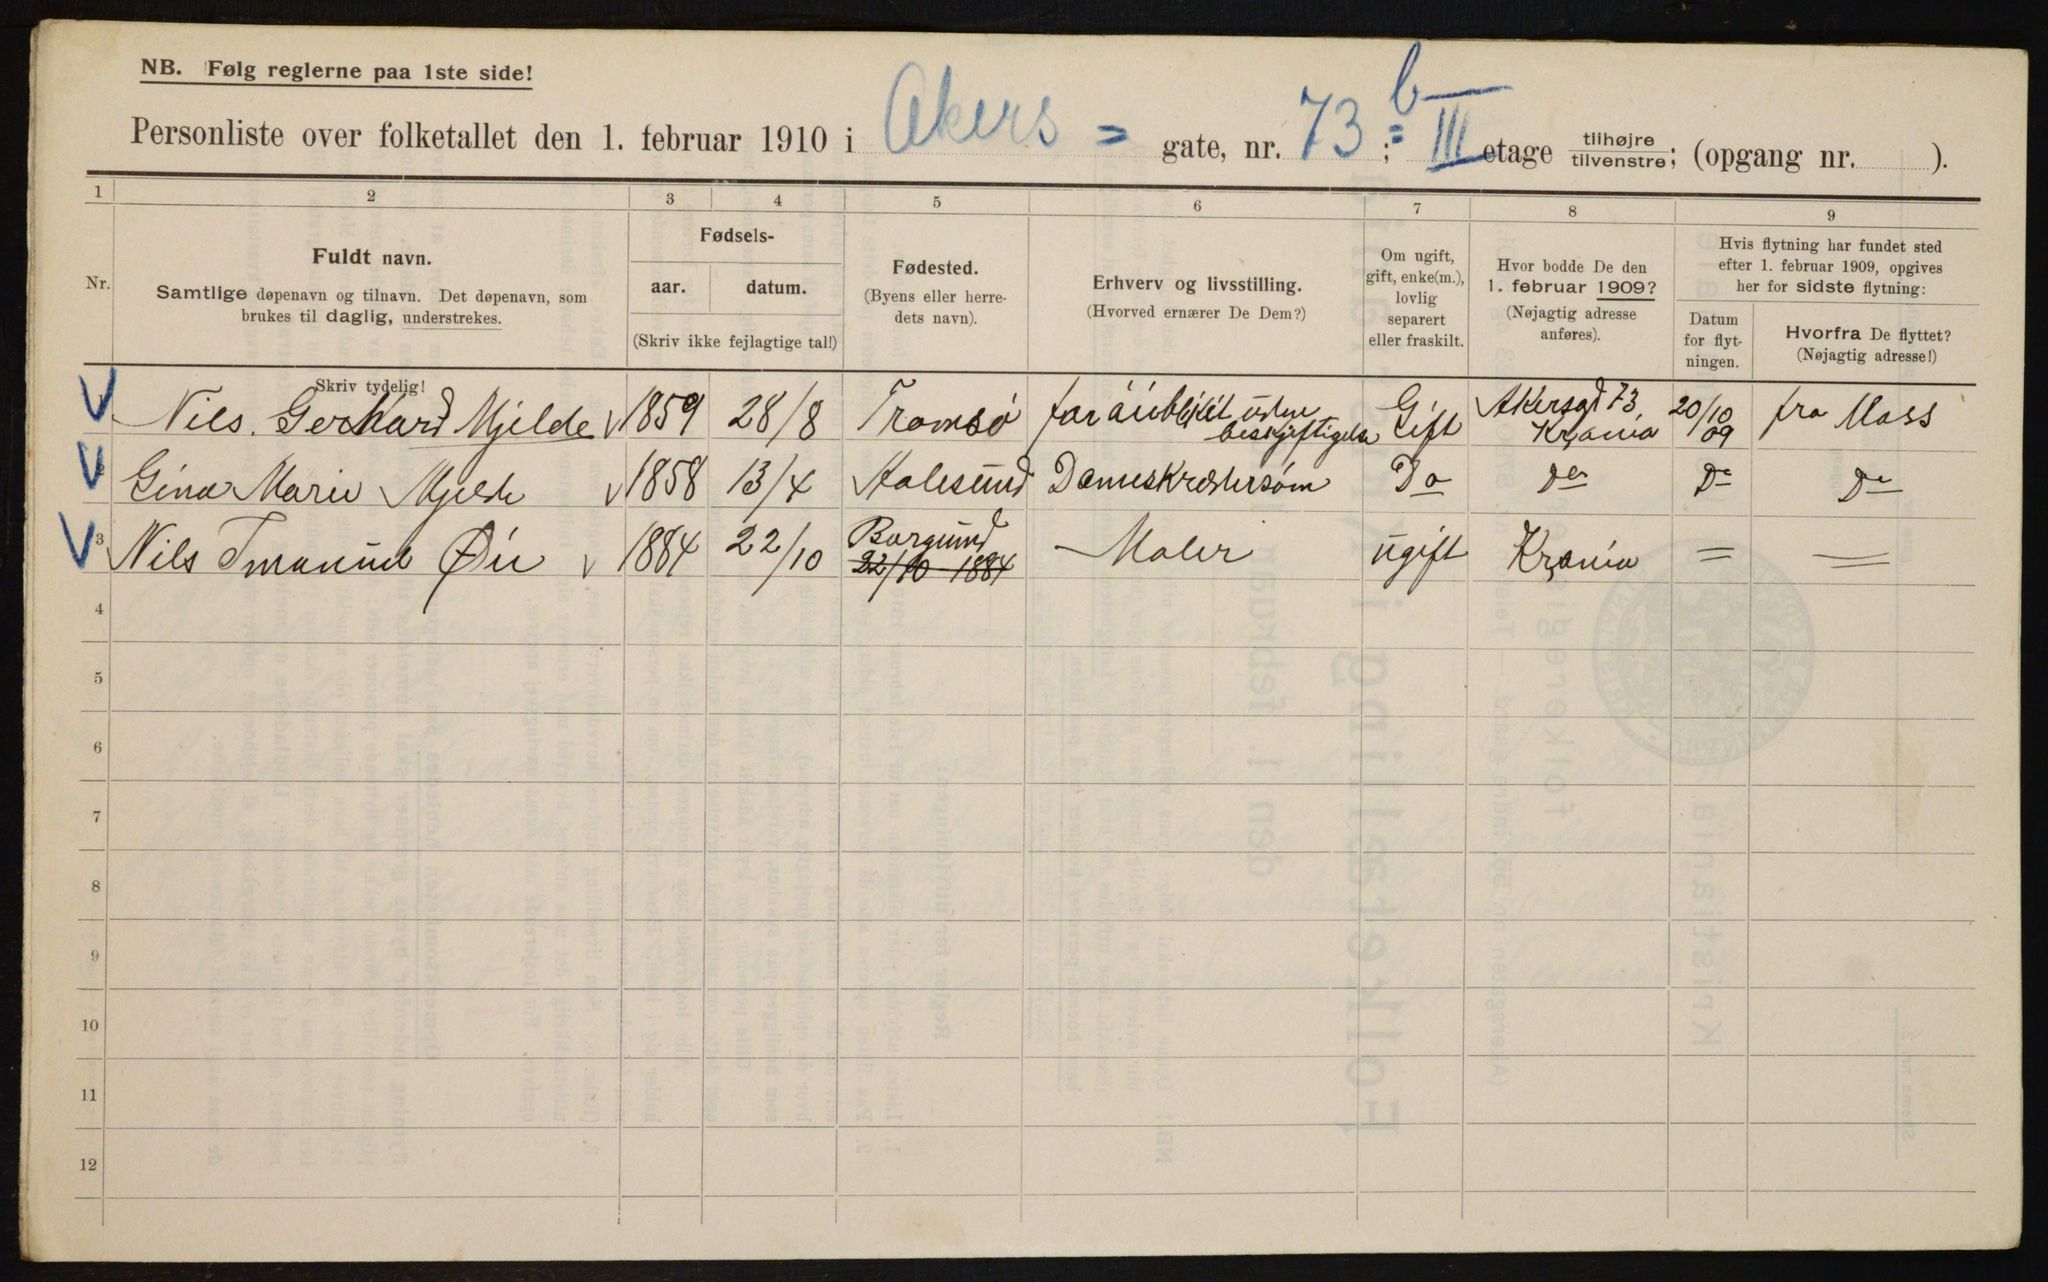 NB. Følg reglerne paa 1ste side!
Personliste over folketallet den 1. februar 1910 i Akers = gate, nr. 73 b; III etage tilhøjre tilvenstre; (opgang nr. ).
1 2 3 4 5 6 7 8 9
Nr.
Fuldt navn.
Samtlige døpenavn og tilnavn. Det døpenavn, som
brukes til daglig, understrekes.
Skriv tydelig!
Fødsels-
aar. datum.
(Skriv ikke fejlagtige tal!)
Fødested.
(Byens eller herre-
dets navn).
Erhverv og livsstilling.
(Hvorved ernærer De Dem?)
Om ugift,
gift, enke(m.),
lovlig
separert
eller fraskilt.
Hvor bodde De den
1. februar 1909?
(Nøjagtig adresse
anføres).
Hvis flytning har fundet sted
efter 1. februar 1909, opgives
her for sidste flytning:
Datum
for flyt-
ningen.
Hvorfra De flyttet?
(Nøjagtig adresse!)
V Nils Gerhard Mjelde v 1859 28/8 Tromsø uden beskjeftigelse Gift Akersgd 73, Krania 20/10 09 fra Moss
V Gina Marie Mjelde v 1858 13/4 Aalesund Do Do Do Do
V 3 Nils v 1884 22/10 Borgund 22/10 1884 Maler ugift Krania = =
4
5
6
7
8
9
10
11
12